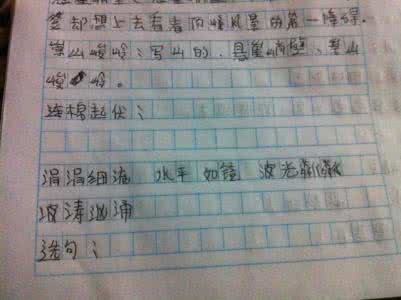 却想上去看看顶峰风景的第一障碍.
崇山峻岭：写山的.悬崖峭壁、崇山
峻岭。
连绵起伏：
涓涓细流 水平如镜 波光粼粼
波涛汹涌
选句：